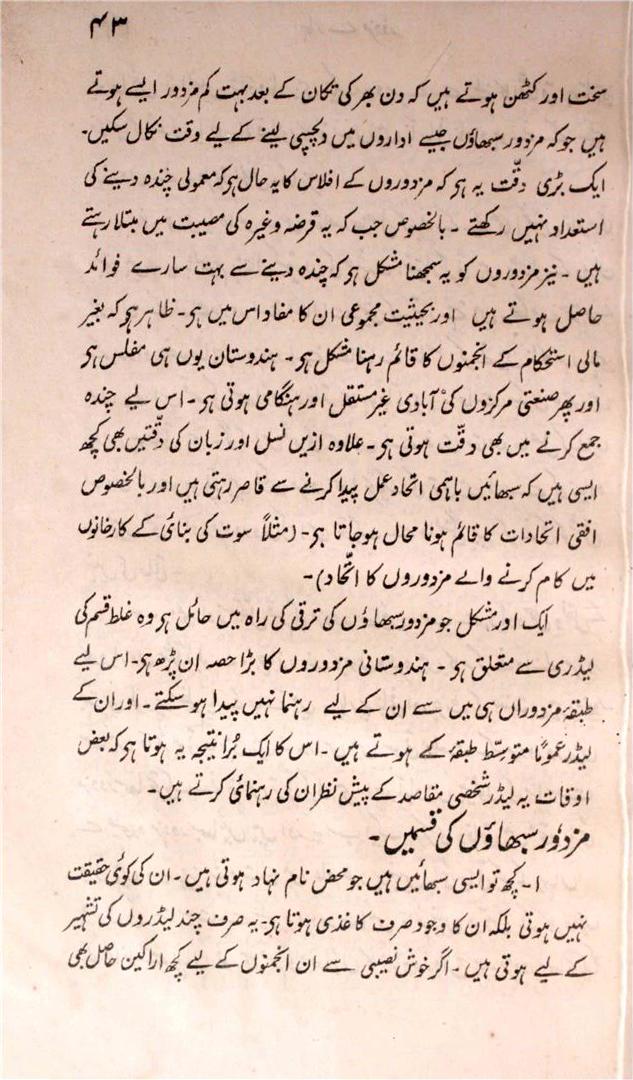 ۴۳
سخت اور کٹھن ہوتے ہیں کہ دن بھر کی تکان کے بعد بہت کم مزدور ایسے ہوتے
ہیں جو کہ مزدور سبھاؤں جیسے اداروں میں دلچسپی لینے کے لیے وقت نکال سکیں۔
ایک بڑی دقّت یہ ہو کہ مزدوروں کے افلاس کا یہ حال ہو کہ معمولی چندہ دینے کی
استعداد نہیں رکھتے ۔ بالخصوص جب کہ یہ قرضہ وغیرہ کی مصیبت میں مبتلا رہتے
ہیں ۔ نیز مزدوروں کو یہ سمجھنا مشکل ہو کہ چندہ دینے سے بہت سارے فوائد
حاصل ہوتے ہیں اور بحیثیت مجموعی ان کا مفاد اس میں ہو۔ ظاہر ہو کہ بغیر
مالی استحکام کے انجمنوں کا قائم رہنا مشکل ہو ۔ ہندوستان یوں ہی مفلس ہو
اور پھر صنعتی مرکزوں کی آبادی غیر مستقل اور ہنگامی ہوتی ہو ۔ اس لیے چندہ
جمع کرنے میں بھی دقّت ہوتی ہو ۔ علاوہ ازیں نسل اور زبان کی دقّتیں بھی کچھ
ایسی ہیں کہ سبھائیں باہمی اتحاد عمل پیدا کرنے سے قاصر رہتی ہیں اور بالخصوص
افقی اتحادات کا قائم ہونا محال ہو جاتا ہو۔ (مثلاً سوت کی بنائی کے کارخانوں
میں کام کرنے والے مزدوروں کا اتّحاد)۔
ایک اور مشکل جو مزدور سبھاؤں کی ترقی کی راہ میں حائل ہو وہ غلط قسم کی
لیڈری سے متعلق ہو ۔ ہندوستانی مزدوروں کا بڑا حصہ ان پڑھ ہو۔ اس لیے
طبقۂ مزدوراں ہی میں سے ان کے لیے رہنما نہیں پیدا ہو سکتے ۔ اور ان کے
لیڈر عموماً متوسّط طبقۂ کے ہوتے ہیں ۔ اس کا ایک بُرا نتیجہ یہ ہوتا ہو کہ بعض
اوقات یہ لیڈر شخصی مقاصد کے پیش نظر ان کی رہنمائی کرتے ہیں۔
مزدور سبھاؤں کی قسمیں ۔
۱ ۔ کچھ تو ایسی سبھائیں ہیں جو محض نام نہاد ہوتی ہیں ۔ ان کی کوئی حقیقت
نہیں ہوتی بلکہ ان کا وجود صرف کاغذی ہوتا ہو۔ یہ صرف چند لیڈروں کی تشہیر
کے لیے ہوتی ہیں ۔ اگر خوش نصیبی سے ان انجمنوں کے لیے کچھ اراکین حاصل بھی